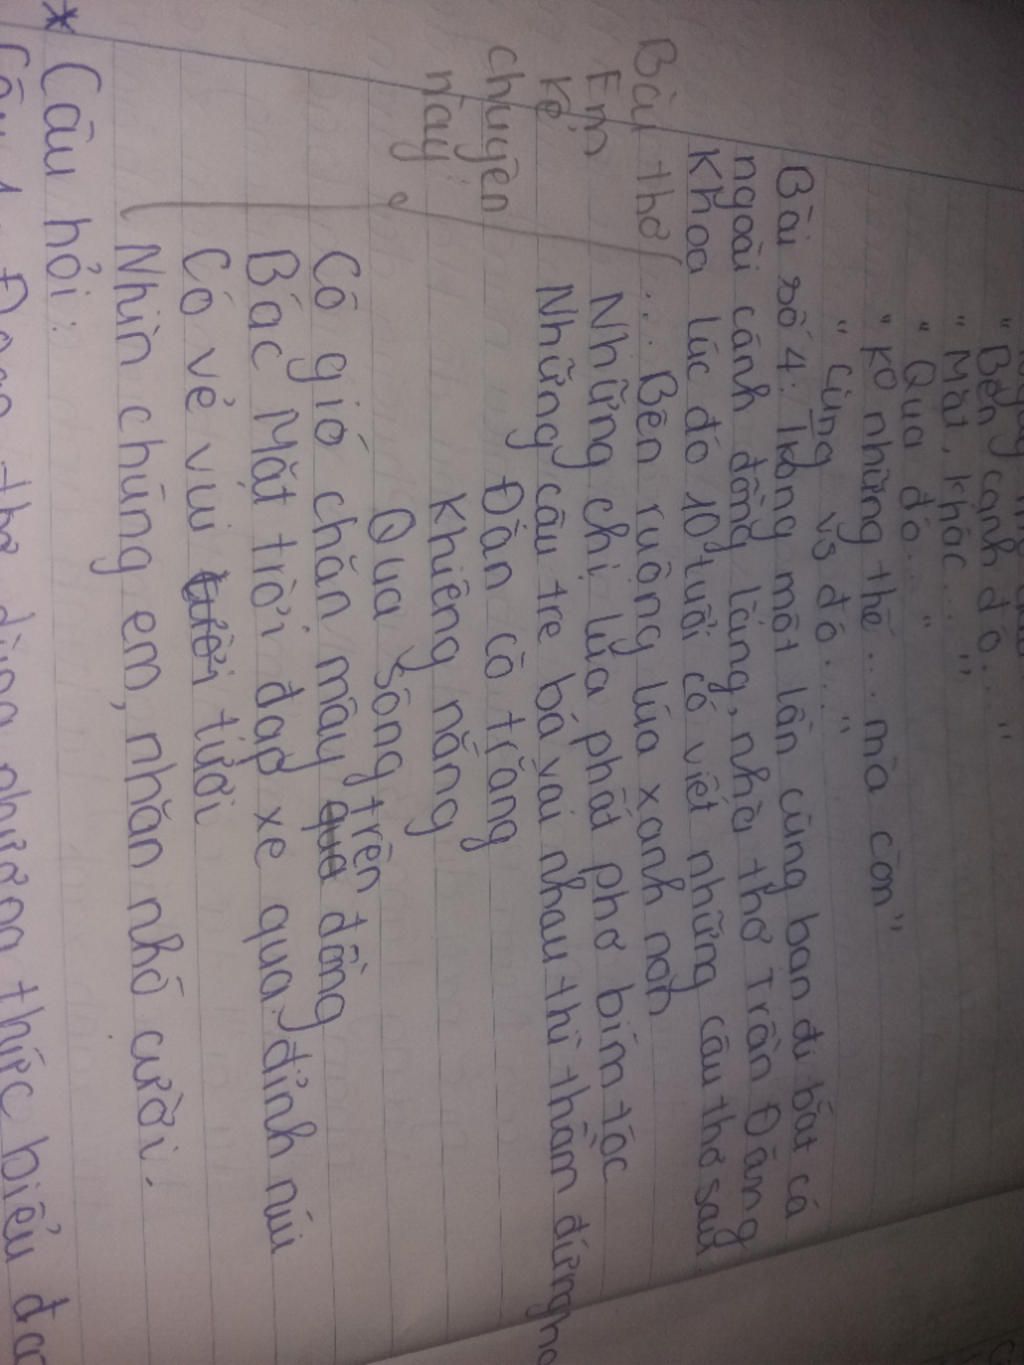 " Bên cạnh đó... "
" Mặt khác... "
" Qua đó... "
" Ko những thế... mà còn"
" Cùng vs đó... "
Bài số 4: Trong một lần cùng bạn đi bắt cá
ngoài cánh đồng làng, nhà thơ Trần Đăng
Khoa lúc đó 10 tuổi có viết những câu thơ sau
Bài thơ
Em
kể
chuyện
này
... Bên ruộng lúa xanh non
Những chị lúa phất phơ bím tóc
Những cậu tre bá vai nhau thì thầm đứng
Đàn cò trắng
Khiêng nắng
Qua sông
Cô gió chăn mây trên đồng
Bác Mặt trời đạp xe qua đỉnh núi
Có vẻ vui tươi
Nhìn chúng em, nhăn nhó cười.
* Câu hỏi:
Đoạn thơ dùng phương thức biểu